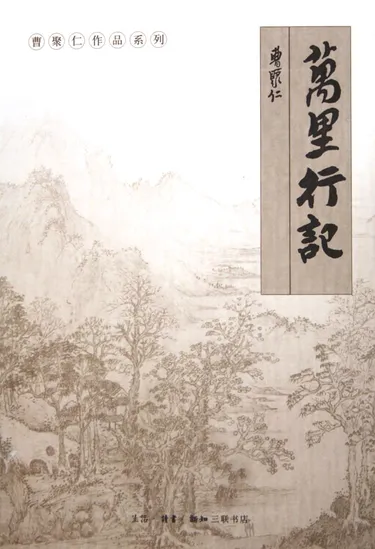 曹聚仁作品系列
萬里行記
曹聚仁
生活·讀書·新知三联书店